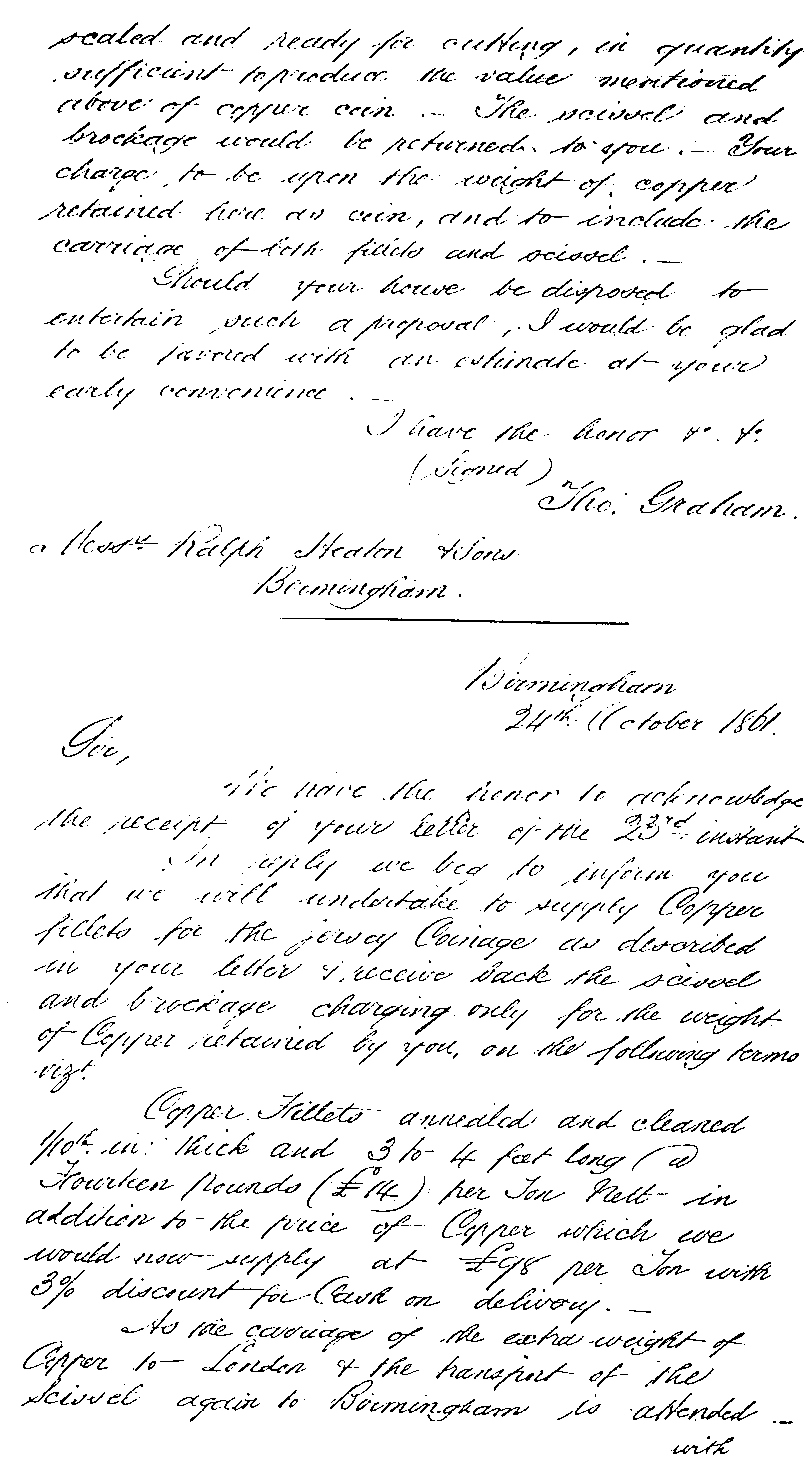 scaled and ready for cutting, in quantity
sufficient to produce the value mentioned
above of copper coin. — The scissel and
brockage would be returned to you. — Your
charge to be upon the weight of copper
retained here as coin, and to include the
carriage of both fillets and scissel. —
Should your house be disposed to
entertain such a proposal, I would be glad
to be favored with an estimate at your
early convenience. —
I have the honor &c. &c.
(Signed)
Tho: Graham.
Messrs Ralph Heaton & Sons
Birmingham.
Birmingham
24th October 1861.
Sir,
We have the honor to acknowledge
the receipt of your letter of the 23rd instant
In reply we beg to inform you
that we will undertake to supply Copper
fillets for the jersey Coinage as described
in your letter & receive back the scissel
and brockage charging only for the weight
of Copper retained by you, on the following terms
vizt.
Copper Fillets annealed and cleaned
1/10th in: thick and 3 to 4 feet long @
Fourteen Pounds (£14) per Ton Nett — in
addition to the price of Copper which we
would now supply at £98 per Ton with
3% discount for Cash on delivery. —
As the carriage of the extra weight of
Copper to London & the transport of the
scissel again to Birmingham is attended —
with